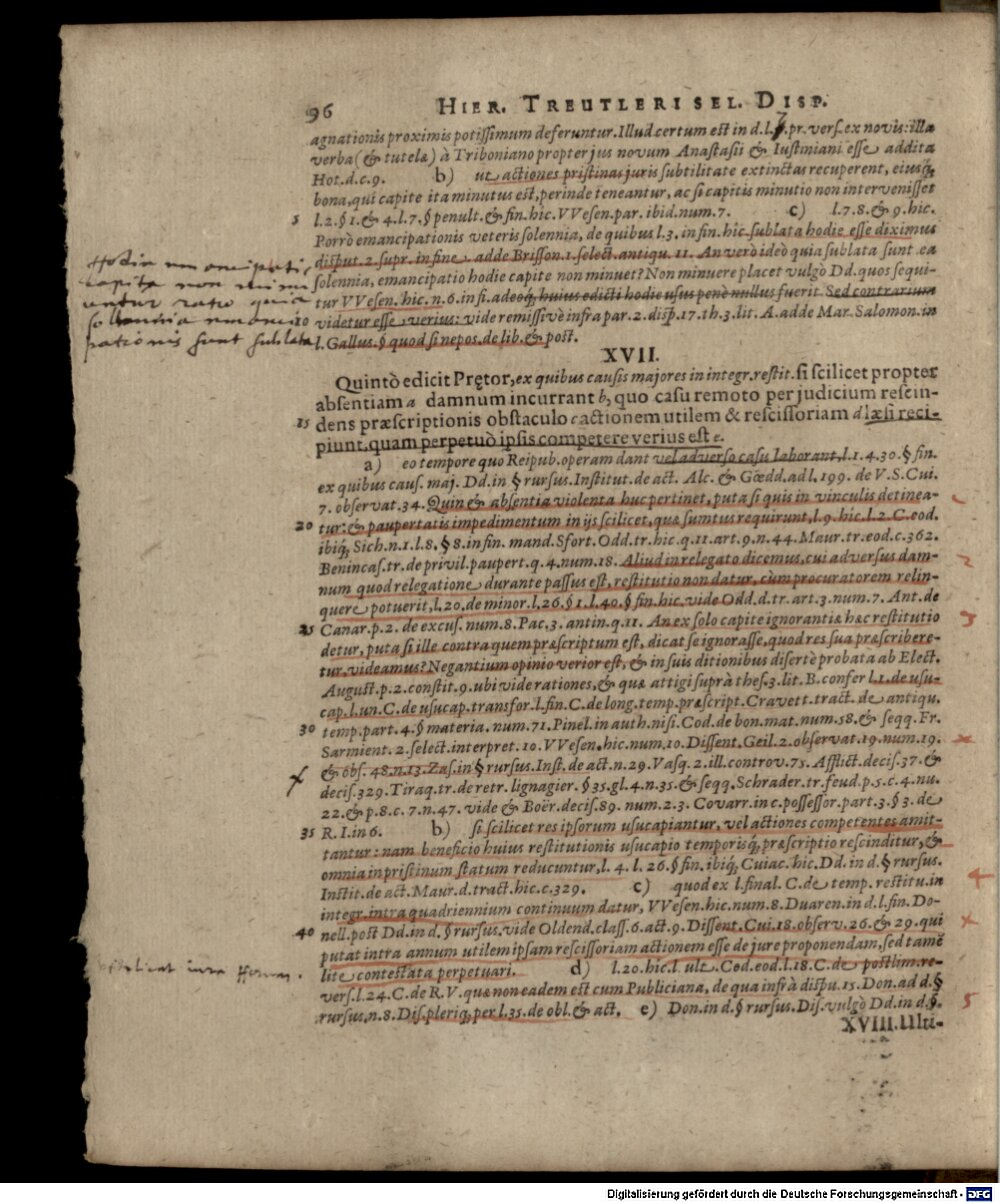 96 HIER. TREUTLERI SEL. DISP.
agnationis proximis potissimum deferuntur. Illud certum est in d.l.7.pr.vers.ex novis: illa
verba (& tutela) à Triboniano propter jus novum Anastasii & Iustiniani esse addita
Hot.d.c.9. b) ut actiones pristinas juris subtilitate extinctas recuperent, eiusq;
bona, qui capite ita minutus est, perinde teneantur, ac si capitis minutio non intervenisset
5 l.2.§1.& 4.l.7.§penult.& fin.hic.VVesen.par.ibid.num.7. c) l.7.8.& 9.hic.
Porrò emancipationis veteris solennia, de quibus l.3.in fin.hic.sublata hodie esse diximus
disput.2.supr.in fine, adde Brisson.1.select.antiqu.11. An verò ideò quia sublata sunt ea
solennia, emancipatio hodie capite non minuet? Non minuere placet vulgò Dd.quos sequi-
tur VVesen.hic.n.6.in fi.adeoq; huius edicti hodie usus penè nullus fuerit Sed contrarium
10 videtur esse verius: vide remissivè infra par.2.disp.17.th.3.lit.A.adde Mar.Salomon.in
l.Gallus.§quod si nepos.de lib.& post.
Hodie emancipatio
capita non minu
untur ratio quia
sollennia emanci
pationis sunt sublata
XVII.
Quintò edicit Prętor, ex quibus causis majores in integr.restit. si scilicet propter
absentiam a damnum incurrant b, quo casu remoto per judicium rescin-
15 dens præscriptionis obstaculo c actionem utilem & rescissoriam d læsi reci-
piunt, quam perpetuò ipsis competere verius est e.
a) eo tempore quo Reipub.operam dant vel adverso casu laborant, l.1.4.30.§fin.
ex quibus caus.maj.Dd.in §rursus.Institut.de act. Alc.& Gœdd.ad l.199.de V.S.Cui.
7.observat.34. Quin & absentia violenta huc pertinet, puta si quis in vinculis detinea-
20 tur: & paupertatis impedimentum in ijs scilicet, quæ sumtus requirunt, l.9.hic.l.2.C.eod.
ibiq; Sich.n.1.l.8.§8.in fin.mand.Sfort.Odd.tr.hic.q.11.art.9.n.44.Maur.tr.eod.c.362.
Benincas.tr.de privil.paupert.q.4.num.18. Aliud in relegato dicemus, cui adversus dam-
num quod relegatione durante passus est, restitutio non datur, cùm procuratorem relin-
quere potuerit, l.20.de minor.l.26.§1.l.40.§fin.hic.vide Odd.d.tr.art.3.num.7.Ant.de
25 Canar.p.2.de excus.num.8.Pac.3.antin.q.11. An ex solo capite ignorantiæ hæc restitutio
detur, puta si ille contra quem præscriptum est, dicat se ignorasse, quod res sua præscribere-
tur, videamus? Negantium opinio verior est, & in suis ditionibus disertè probata ab Elect.
August.p.2.constit.9.ubi vide rationes, & quæ attigi suprà thes.3.lit.B.confer l.1.de usu-
cap.l.un.C.de usucap.transfor.l.fin.C.de long.temp.præscript.Cravett.tract.de antiqu.
30 temp.part.4.§materia.num.71.Pinel.in auth.nisi.Cod.de bon.mat.num.58.& seqq.Fr.
Sarmient.2.select.interpret.10.VVesen.hic.num.10.Dissent.Geil.2.observat.19.num.19.
& obs.48.n.13.Zas.in §rursus.Inst.de act.n.29.Vasq.2.ill.controv.75.Afflict.decis.37.&
decis.329.Tiraq.tr.de retr.lignagier.§35.gl.4.n.35.& seqq.Schrader.tr.feud.p.5.c.4.nu.
22.& p.8.c.7.n.47.vide & Boër.decis.89.num.2.3.Covarr.in c.possessor.part.3.§3.de
35 R.I.in 6. b) si scilicet res ipsorum usucapiantur, vel actiones competentes amit-
tantur: nam beneficio huius restitutionis usucapio temporisq; præscriptio rescinditur, &
omnia in pristinum statum reducuntur, l.4.l.26.§fin.ibiq; Cuiac.hic.Dd.in d.§rursus.
Instit.de act.Maur.d.tract.hic.c.329. c) quod ex l.final.C.de temp.restitu.in
integr.intra quadriennium continuum datur, VVesen.hic.num.8.Duaren.in d.l.fin.Do-
40 nell.post Dd.in d.§rursus.vide Oldend.class.6.act.9.Dissent.Cui.18.observ.26.& 29.qui
putat intra annum utilem ipsam rescissoriam actionem esse de jure proponendam, sed tamē
lite contestata perpetuari. d) l.20.hic.l.ult.Cod.eod.l.18.C.de postlim.re-
vers.l.24.C.de R.V.quæ non eadem est cum Publiciana, de qua infrà dispu.15.Don.ad d.§
rursus.n.8.Dis.pleriq; per l.35.de obl.& act. e) Don.in d.§rursus.Dis.vulgò Dd.in d.§.
2
3
4
5
XVIII. Ulti-
Digitalisierung gefördert durch die Deutsche Forschungsgemeinschaft - DFG